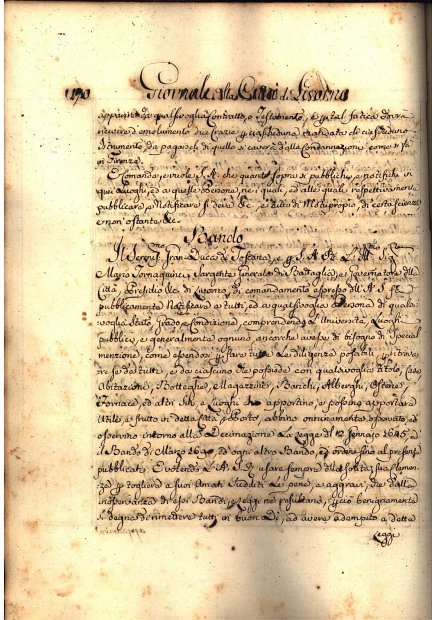 190 Giornale della Città di Livorno
apparirà da qualsivoglia Contratto, o Testamento, e p tal fatica dovrà
ricevere d'emolumento due Crazie p ciascheduna trattata di ciascheduno
Istrumento, da pagarseli di quello si caverà dalle Condannazioni, come si fà
in Firenze.
E comanda, e vuole S. A. che quanto sopra si pubblichi, e notifichi in
quei Luoghi, ed a quelle Persone, ne i quali, ed alle quali respettivamente
pubblicare, e Notificare si deve &c. e tutto di Motuproprio, di certa scienza
e non ostante &c.
Bando
Il Sereniss.mo Gran Duca di Toscana, e p S. A. S. L' Ill.mo Sig.
Mario Tornaquinci, Sargente Generale di Battaglia, e Governatore della
Città, Presidio &c. di Livorno, di comandamento espresso dell' A. S. fà
pubblicamente Notificare a tutti, ed a qualsivoglia Persona di quala
voglia Stato, Grado, e Condizione, comprendendo L'Università, Luoghi
pubblici, e generalmente ognuno, ancorche avesse di bisogno di Special
menzione, come essendosi fatte tutte Le diligenze possibili, p ritrova
re se da tutti, e da ciascuno che possieda con qualsivoglia titolo, Case
Abitazioni, Botteghe, Magazzini, Banchi, Alberghi, Osterie,
Fornace, ed altri Siti, e Luoghi che apportino, e possino apportare
Utile, e frutto in detta Città, e Porto, abbino onninamente osservato, ed
osservino intorno alla Decimazione La Legge de' 12 Gennaio 1645, ed
il Bando di Marzo 1690, ed ogni altro Bando, ed ordine sino al presente
pubblicati; E volendo L' A. S. usare sempre della solita sua Clemen
za, p togliere a suoi Amati Sudditi Le pene, e aggravi, che dalla
inosservanza di essi Bandi, e Leggi ne resultano, p ciò benignamente
si degna di rimettere tutti in buon dì, ad avere adempito a detta
Legge